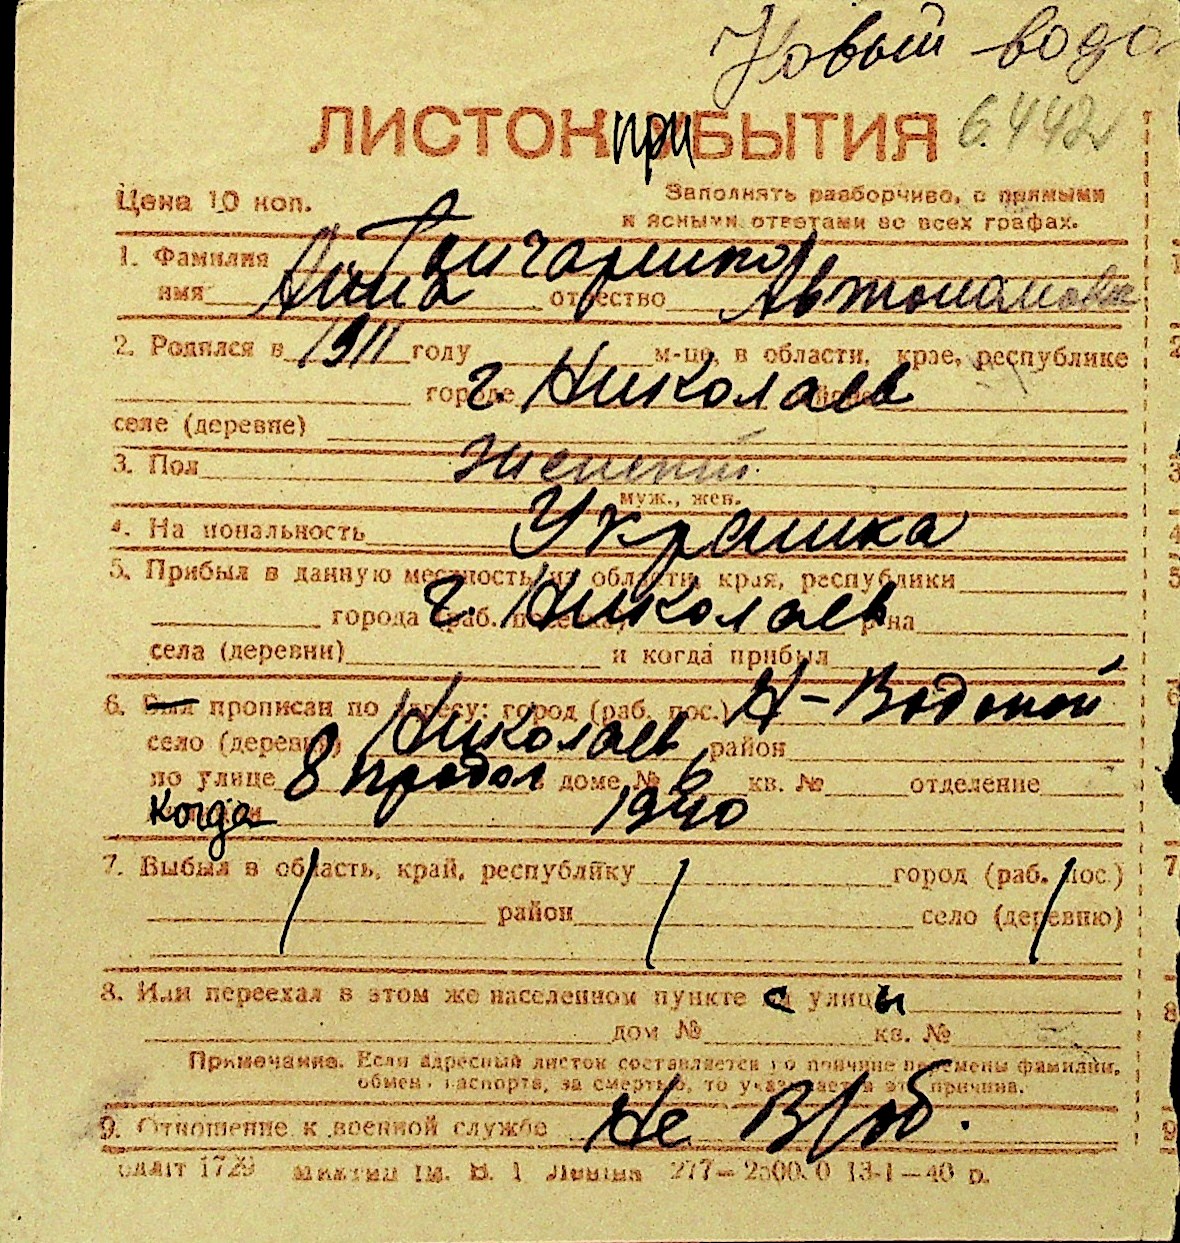 Новый водо
ЛИСТОК ПРИБЫТИЯ 6.442
Цена 10 коп. Заполнять разборчиво, с прямыми
и ясными ответами во всех графах.
1. Фамилия
имя Анна отчество Автономовна
2. Родился в 1911 году м-це, в области, крае, республике
городе г. Николаев
селе (деревне)
3. Пол женский
муж., жен.
4. Национальность Украинка
5. Прибыл в данную местность из области, края, республики
города (раб. поселка) г. Николаев р-на
села (деревни) и когда прибыл
6. Был прописан по адресу: город (раб. пос.) Н-Водопой
село (деревня) Николаев район
по улице 8 продол доме № 6 кв. № отделение
когда 1940
7. Выбыл в область, край, республику город (раб. пос.)
район село (деревню)
8. Или переехал в этом же населенном пункте с улицы
дом № кв. №
Примечание. Если адресный листок составляется по причине перемены фамилии,
обмена паспорта, за смертью, то указывается эта причина.
9. Отношение к военной службе Не В/об.
Облліт 1729 Миколаїв Ім. В. І Леніна 277—2500.0 13-1—40 р.